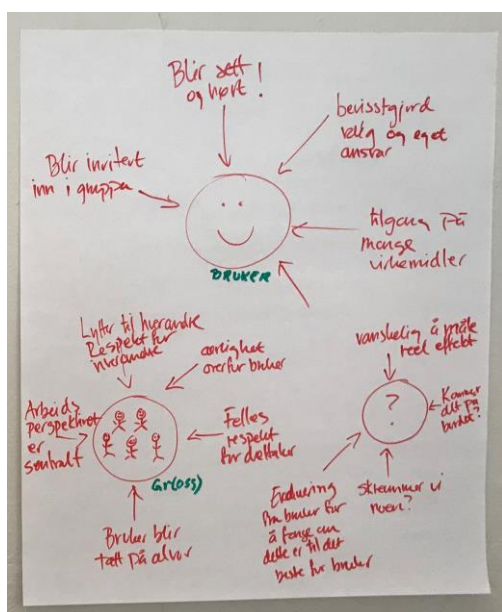 Blir sett
og hørt!
bevisstgjord
valg og eget
ansvar
Blir invitert
inn i gruppa
tilgang på
mange
virkemidler
BRUKER
Lytter til hverandre
Respekt for
hverandre
ærlighet
overfor bruker
Arbeids
perspektivet
er
sentralt
Felles
respekt
for deltaker
Gr(oss)
Bruker blir
tatt på alvor
vanskelig å måle
reel effekt
?
Kommer
alt på
bordet?
Evaluering
fra bruker for
å fange om
dette er til det
beste for bruker
Skremmer vi
noen?